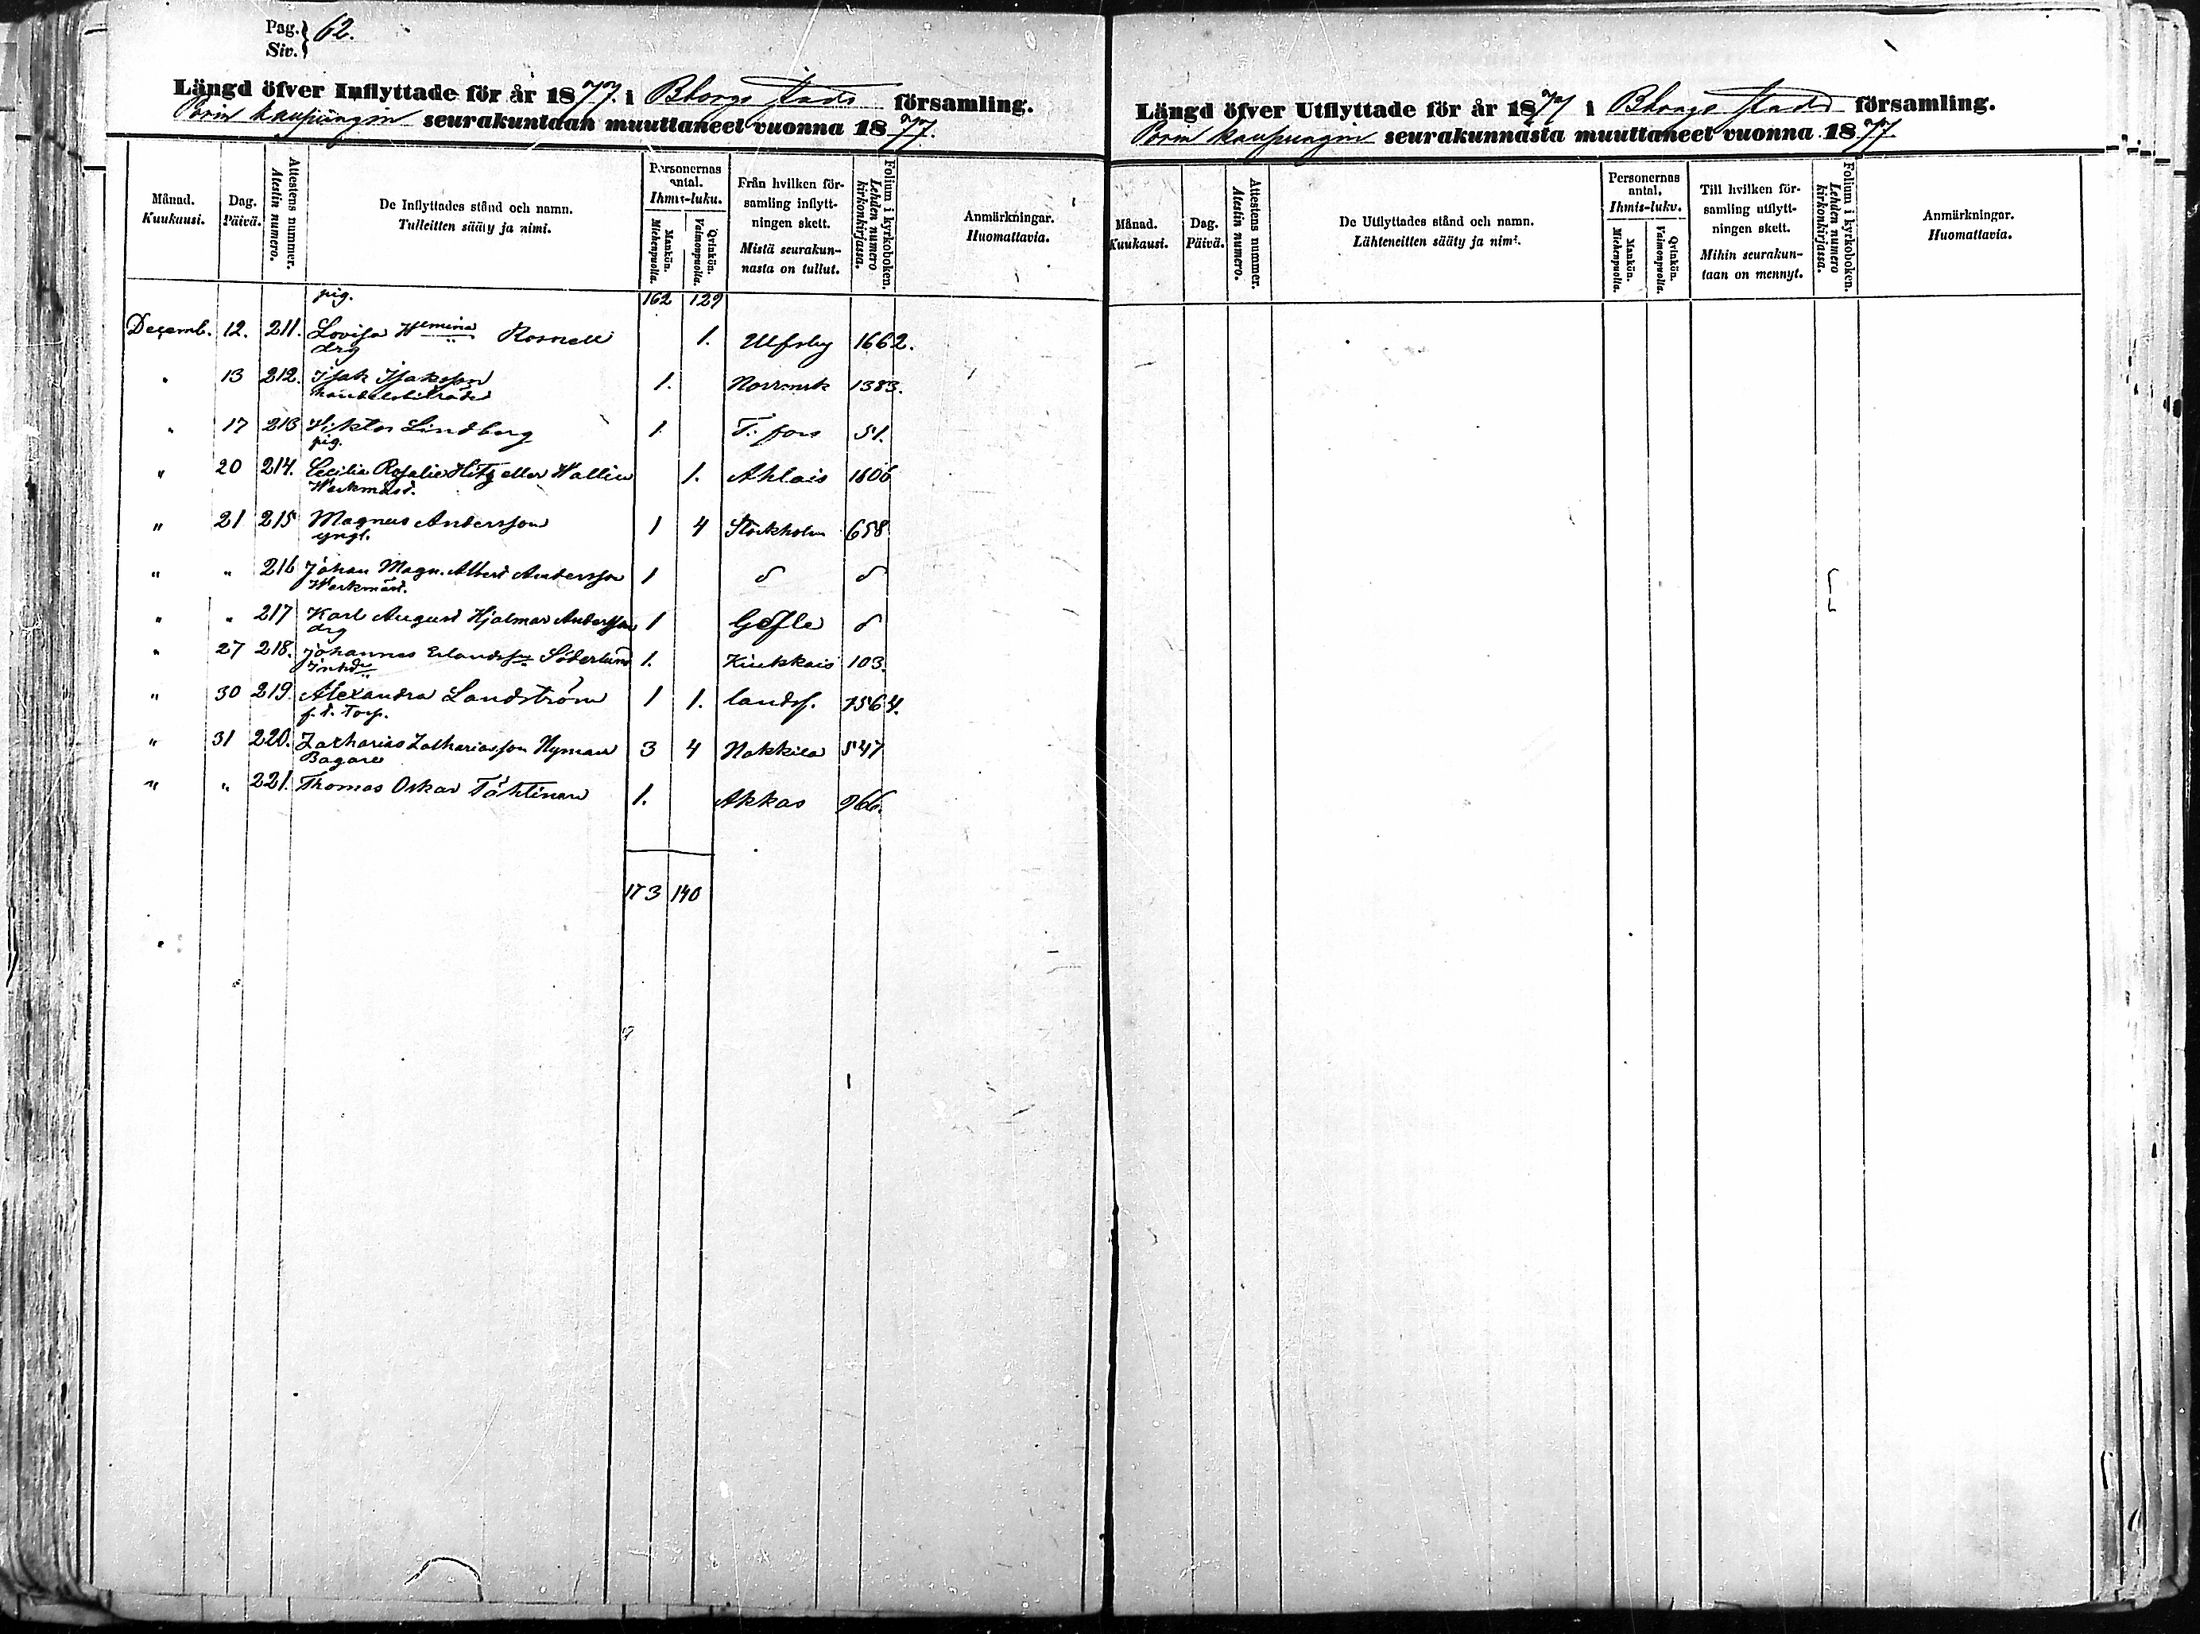 Pag. 62.
Siv.
Längd öfver Inflyttade för år 1877. i Bborgs stads församling.
Porin kaupungin seurakuntaan muuttaneet vuonna 1877.
Månad. Kuukausi.
Dag. Päivä.
Attestens nummer. Atestin numero.
De Inflyttades stånd och namn. Tulleitten sääty ja nimi.
Personernas antal. Ihmis-luku.
Mankön. Miehenpuolia.
Qvinkön. Vaimonpuolia.
Från hvilken församling inflyttningen skett. Mistä seurakunnasta on tullut.
Folium i kyrkoboken. Lehden numero kirkonkirjassa.
Anmärkningar. Huomattavia.
162 129
pig.
Decemb. 12. 211. Lovisa Wilhelmina Rosnell 1. Ulfsby 1662.
drg
" 13 212. Isak Isaksson 1. Norrmrk 1383.
handelsbiträde
" 17 213 Viktor Lindberg 1 T:fors 51.
pig.
" 20 214. Cecilia Rosalia Hitz eller Wallin 1. Ahlais 1606
Werkmäst.
" 21 215 Magnus Andersson 1 4 Stockholm 658
yngl.
" " 216 Johan Magn. Albert Andersson 1 d d
Werkmäst.
" " 217 Karl August Hjalmar Andersson 1 Gefle d
drg
" 27 218. Johannes Erlandsson Söderlund 1. Kiukkais 103.
" 30 219. Alexandra Landström 1 1. landsf. 1564.
f.d. Torp.
" 31 220. Zacharias Zachariasson Nyman 3 4 Nakkila 547
Bagare
" " 221. Thomas Oskar Tähtinen 1. Akkas 966.
173 140
Längd öfver Utflyttade för år 1877 i Bborgs stads församling.
Porin kaupungin seurakunnasta muuttaneet vuonna 1877.
Månad. Kuukausi.
Dag. Päivä.
Attestens nummer. Atestin numero.
De Utflyttades stånd och namn. Lähteneitten sääty ja nimi.
Personernas antal. Ihmis-luku.
Mankön. Miehenpuolia.
Qvinkön. Vaimonpuolia.
Till hvilken församling utflyttningen skett. Mihin seurakuntaan on mennyt.
Folium i kyrkoboken. Lehden numero kirkonkirjassa.
Anmärkningar. Huomattavia.